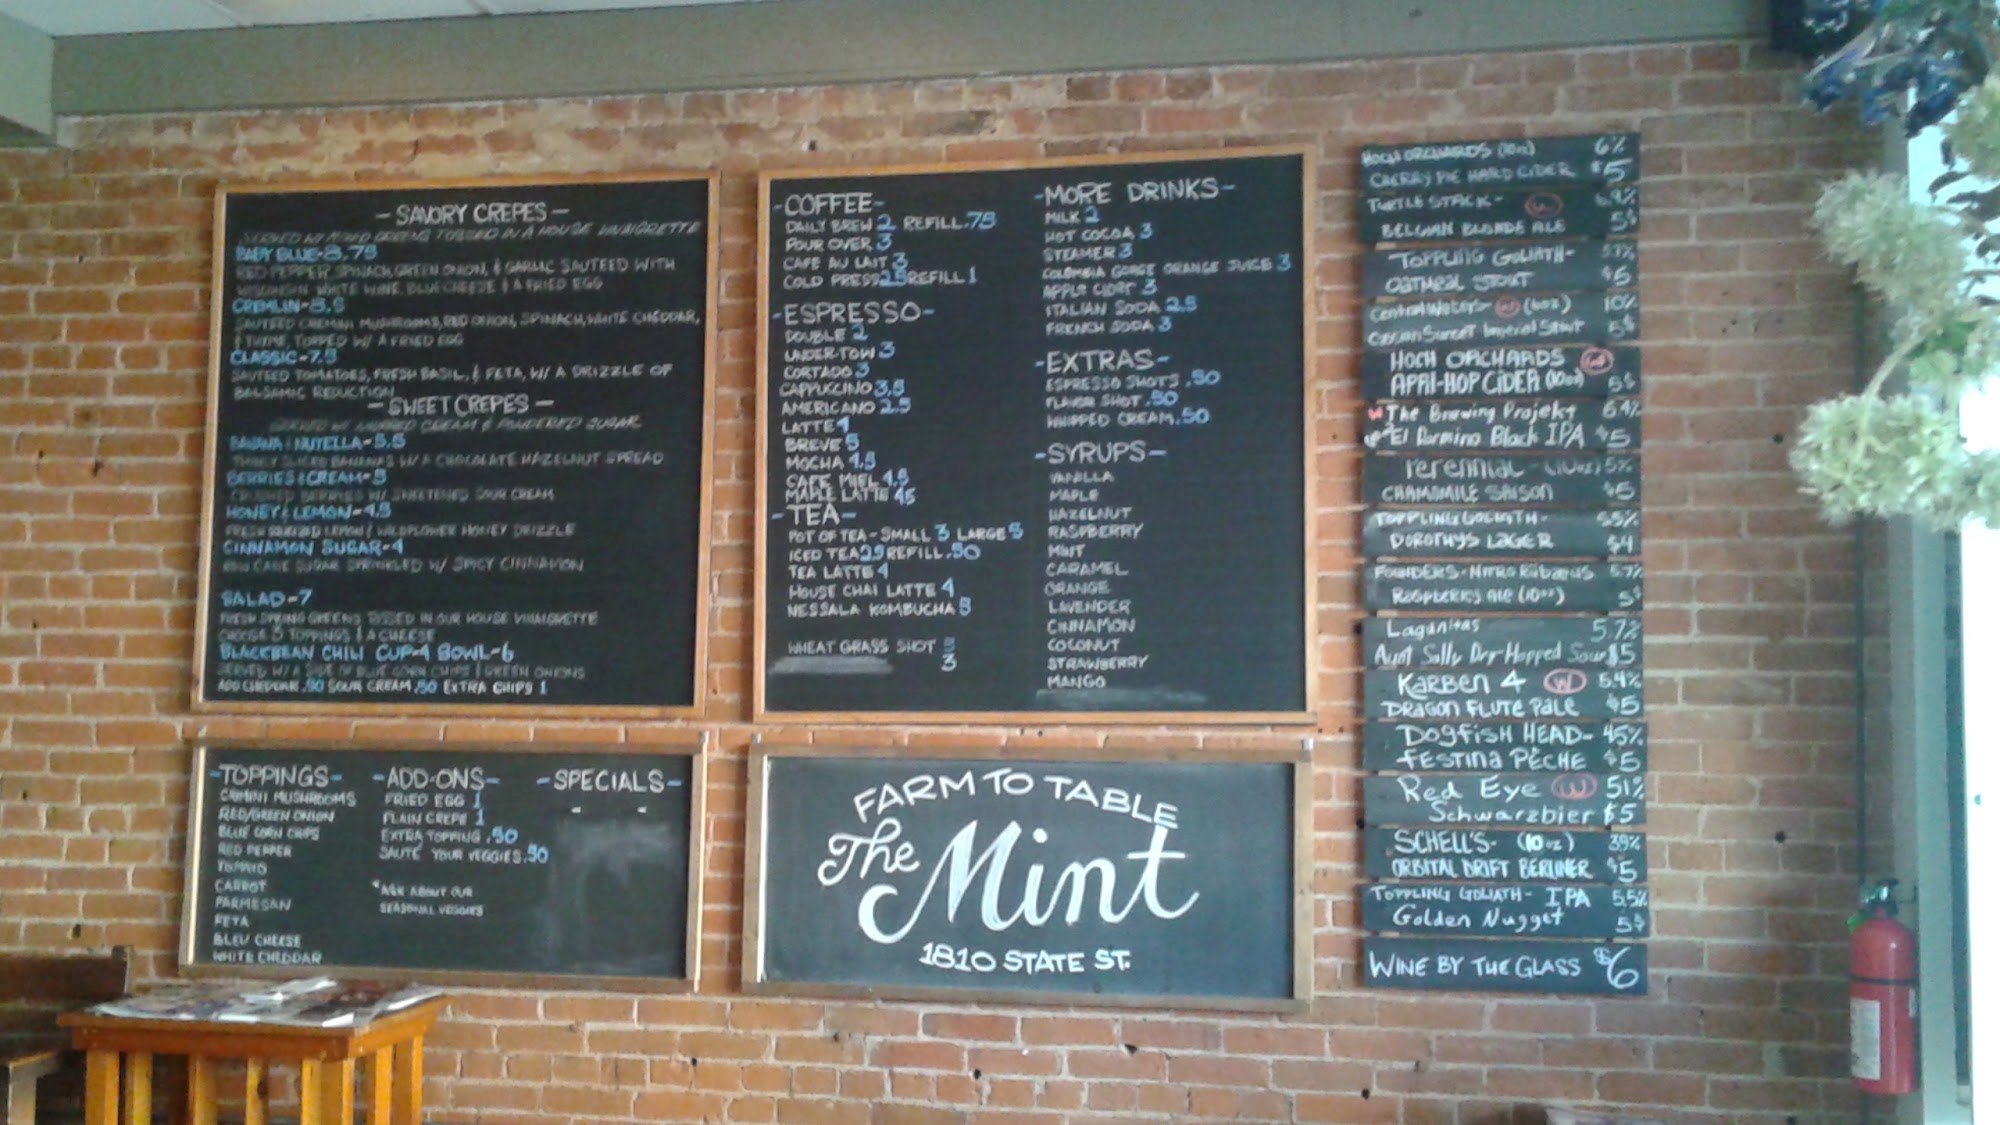 -SAVORY CREPES-
SERVED W/ MIXED GREENS TOSSED IN A HOUSE VINAIGRETTE
BABY BLUE-8.75
RED PEPPER, SPINACH, GREEN ONION, & GARLIC SAUTEED WITH
WISCONSIN WHITE WINE, BLUE CHEESE & A FRIED EGG
CREMLIN-8.5
SAUTEED CREMINI MUSHROOMS, RED ONION, SPINACH, WHITE CHEDDAR,
& THYME, TOPPED W/ A FRIED EGG
CLASSIC-7.5
SAUTEED TOMATOES, FRESH BASIL, & FETA, W/ A DRIZZLE OF
BALSAMIC REDUCTION
-SWEET CREPES-
SERVED W/ WHIPPED CREAM & POWDERED SUGAR
BANANA & NUTELLA-5.5
THINLY SLICED BANANAS W/ A CHOCOLATE HAZELNUT SPREAD
BERRIES & CREAM-5
CRUSHED BERRIES W/ SWEETENED SOUR CREAM
HONEY & LEMON-4.5
FRESH SQUEEZED LEMON & WILDFLOWER HONEY DRIZZLE
CINNAMON SUGAR-4
RAW CANE SUGAR SPRINKLED W/ SPICY CINNAMON
SALAD-7
FRESH SPRING GREENS TOSSED IN OUR HOUSE VINAIGRETTE
CHOOSE 3 TOPPINGS & A CHEESE
BLACKBEAN CHILI CUP-4 BOWL-6
SERVED W/ A SIDE OF BLUE CORN CHIPS & GREEN ONIONS
ADD CHEDDAR .50 SOUR CREAM .50 EXTRA CHIPS 1
-TOPPINGS-
CRIMINI MUSHROOMS
RED/GREEN ONION
BLUE CORN CHIPS
RED PEPPER
CARROT
PARMESAN
FETA
BLEU CHEESE
WHITE CHEDDAR
-ADD-ONS-
FRIED EGG 1
PLAIN CREPE 1
EXTRA TOPPING .50
SAUTÉ YOUR VEGGIES .50
*ASK ABOUT OUR
SEASONAL VEGGIES
-SPECIALS-
-COFFEE-
DAILY BREW 2 REFILL .75
POUR OVER 3
CAFE AU LAIT 3
COLD PRESS 2.5 REFILL 1
-ESPRESSO-
DOUBLE 2
UNDER-TOW 3
CORTADO 3
CAPPUCCINO 3.5
AMERICANO 2.5
LATTE 4
BREVE 5
MOCHA 4.5
CAFE MIEL 4.5
MAPLE LATTE 4.5
-TEA-
POT OF TEA-SMALL 3 LARGE 5
ICED TEA 2.5 REFILL .50
TEA LATTE 4
HOUSE CHAI LATTE 4
NESSALA KOMBUCHA 5
WHEAT GRASS SHOT
3
-MORE DRINKS-
MILK 2
HOT COCOA 3
STEAMER 3
COLOMBIA GORGE ORANGE JUICE 3
APPLE CIDER 3
ITALIAN SODA 2.5
FRENCH SODA 3
-EXTRAS-
ESPRESSO SHOTS .50
FLAVOR SHOT .50
WHIPPED CREAM .50
-SYRUPS-
VANILLA
MAPLE
HAZELNUT
RASPBERRY
MINT
CARAMEL
ORANGE
LAVENDER
CINNAMON
COCONUT
STRAWBERRY
MANGO
FARM TO TABLE
The Mint
1810 STATE ST.
HOCH ORCHARDS (10oz) 6%
CHERRY PIE HARD CIDER $5
TURTLE STACK- W
BELGIAN BLONDE ALE 5$
TOPPLING GOLIATH- 5.7%
OATMEAL STOUT $5
Central Waters- W (6oz) 10%
Cassian Sunset Imperial Stout 5$
HOCH ORCHARDS
APRI-HOP CIDER (10oz) 5$
The Brewing Projekt 6.4%
El Dormino Black IPA $5
Perennial - (10oz) 5%
CHAMOMILE SAISON $5
TOPPLING GOLIATH- 5.5%
DOROTHYS LAGER $4
FOUNDERS-NITRO Rübæus 5.7%
Raspberry Ale (10oz) 5$
Lagunitas 5.7%
Aunt Sally Dry-Hopped Sour $5
KARBEN 4 W 5.4%
DRAGON FLUTE PALE $5
DOGFISH HEAD- 4.5%
FESTINA PÊCHE $5
Red Eye W 5.1%
Schwarzbier $5
SCHELL'S- (10oz) 3.9%
ORBITAL DRIFT BERLINER $5
TOPPLING GOLIATH- IPA 5.5%
Golden Nugget 5$
WINE BY THE GLASS $6